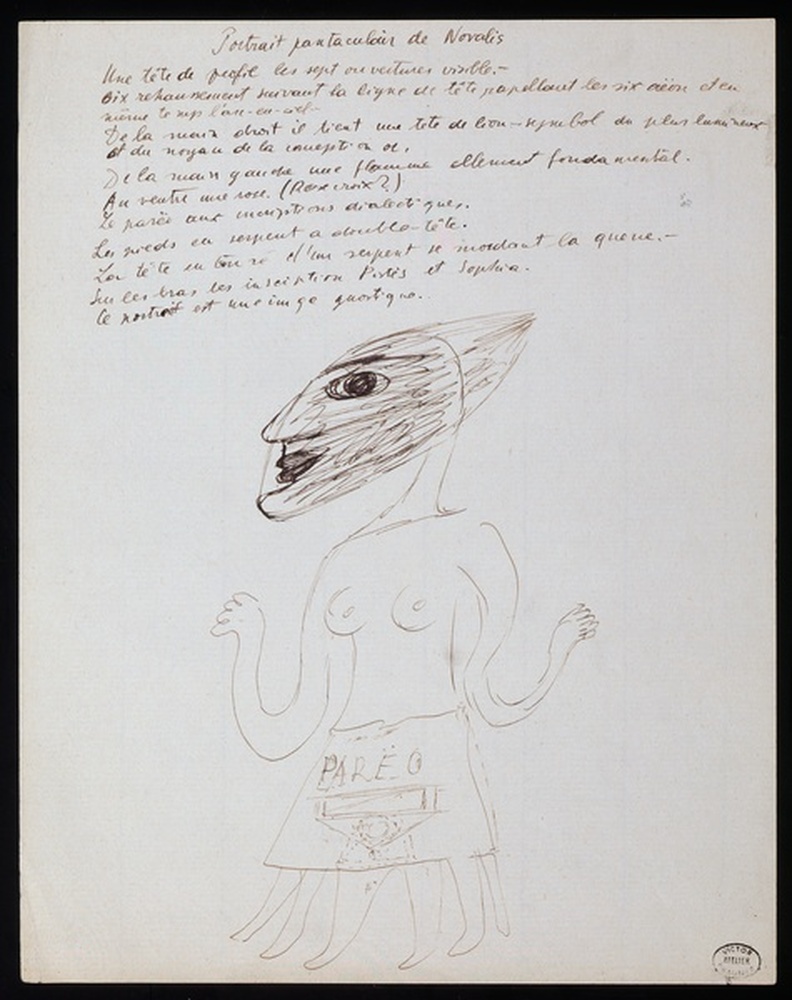 Portrait pantaculair de Novalis
Une tête de profil les sept ouvertures visible.-
Six rehaussement suivant la ligne de tête rapellant les six aéon et en
même temps l'arc-en-ciel-
De la main droit il tient une tete de lion-symbol du plus lumineux
et du noyau de la conception or.
De la main gauche une flamme ellement fondamental.
Au ventre une rose. (Rose croix?)
Le paréo aux inscriptions dialectiques.
Les pieds en serpent a double-tête.
La tête entouré d'un serpent se mordant la queue.-
Sur les bras les insciption Pistis et Sophia.
Ce portrait est une image gnostique..
PARËO
VICTOR
ATELIER